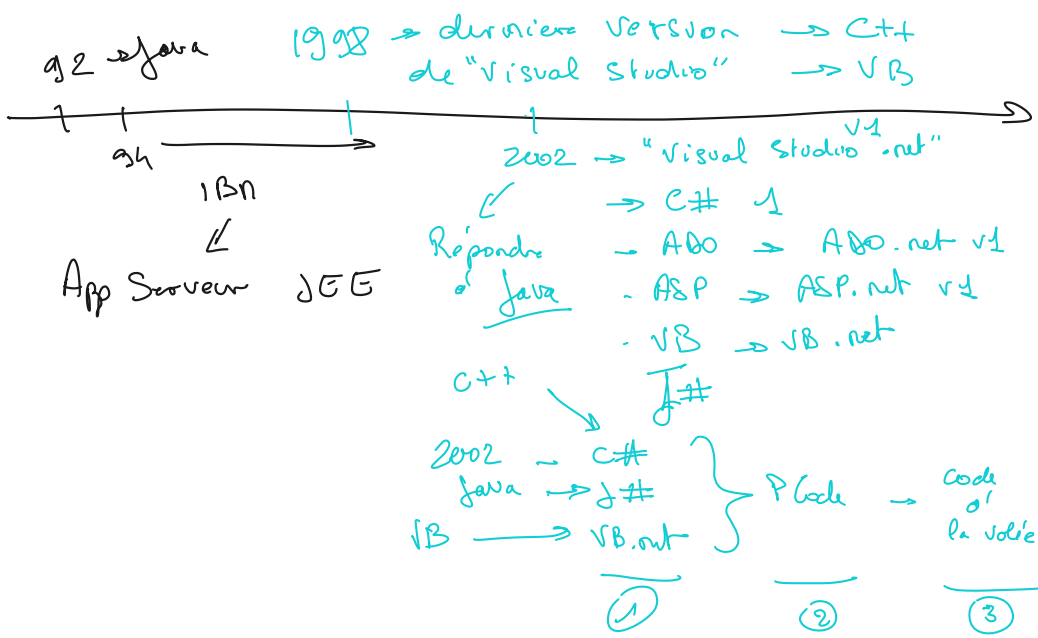 92 → Java
1998 → derniere version → C++
de "Visual Studio" → VB
94
IBM
App Serveur JEE
2002 → "Visual Studio .net" v1
→ C# 1
Répondre
à Java
- ADO → ADO.net v1
- ASP → ASP.net v1
- VB → VB.net
J#
C++
2002 - C#
Java → J#
VB → VB.net
PCode →
code
à
la volée
1
2
3